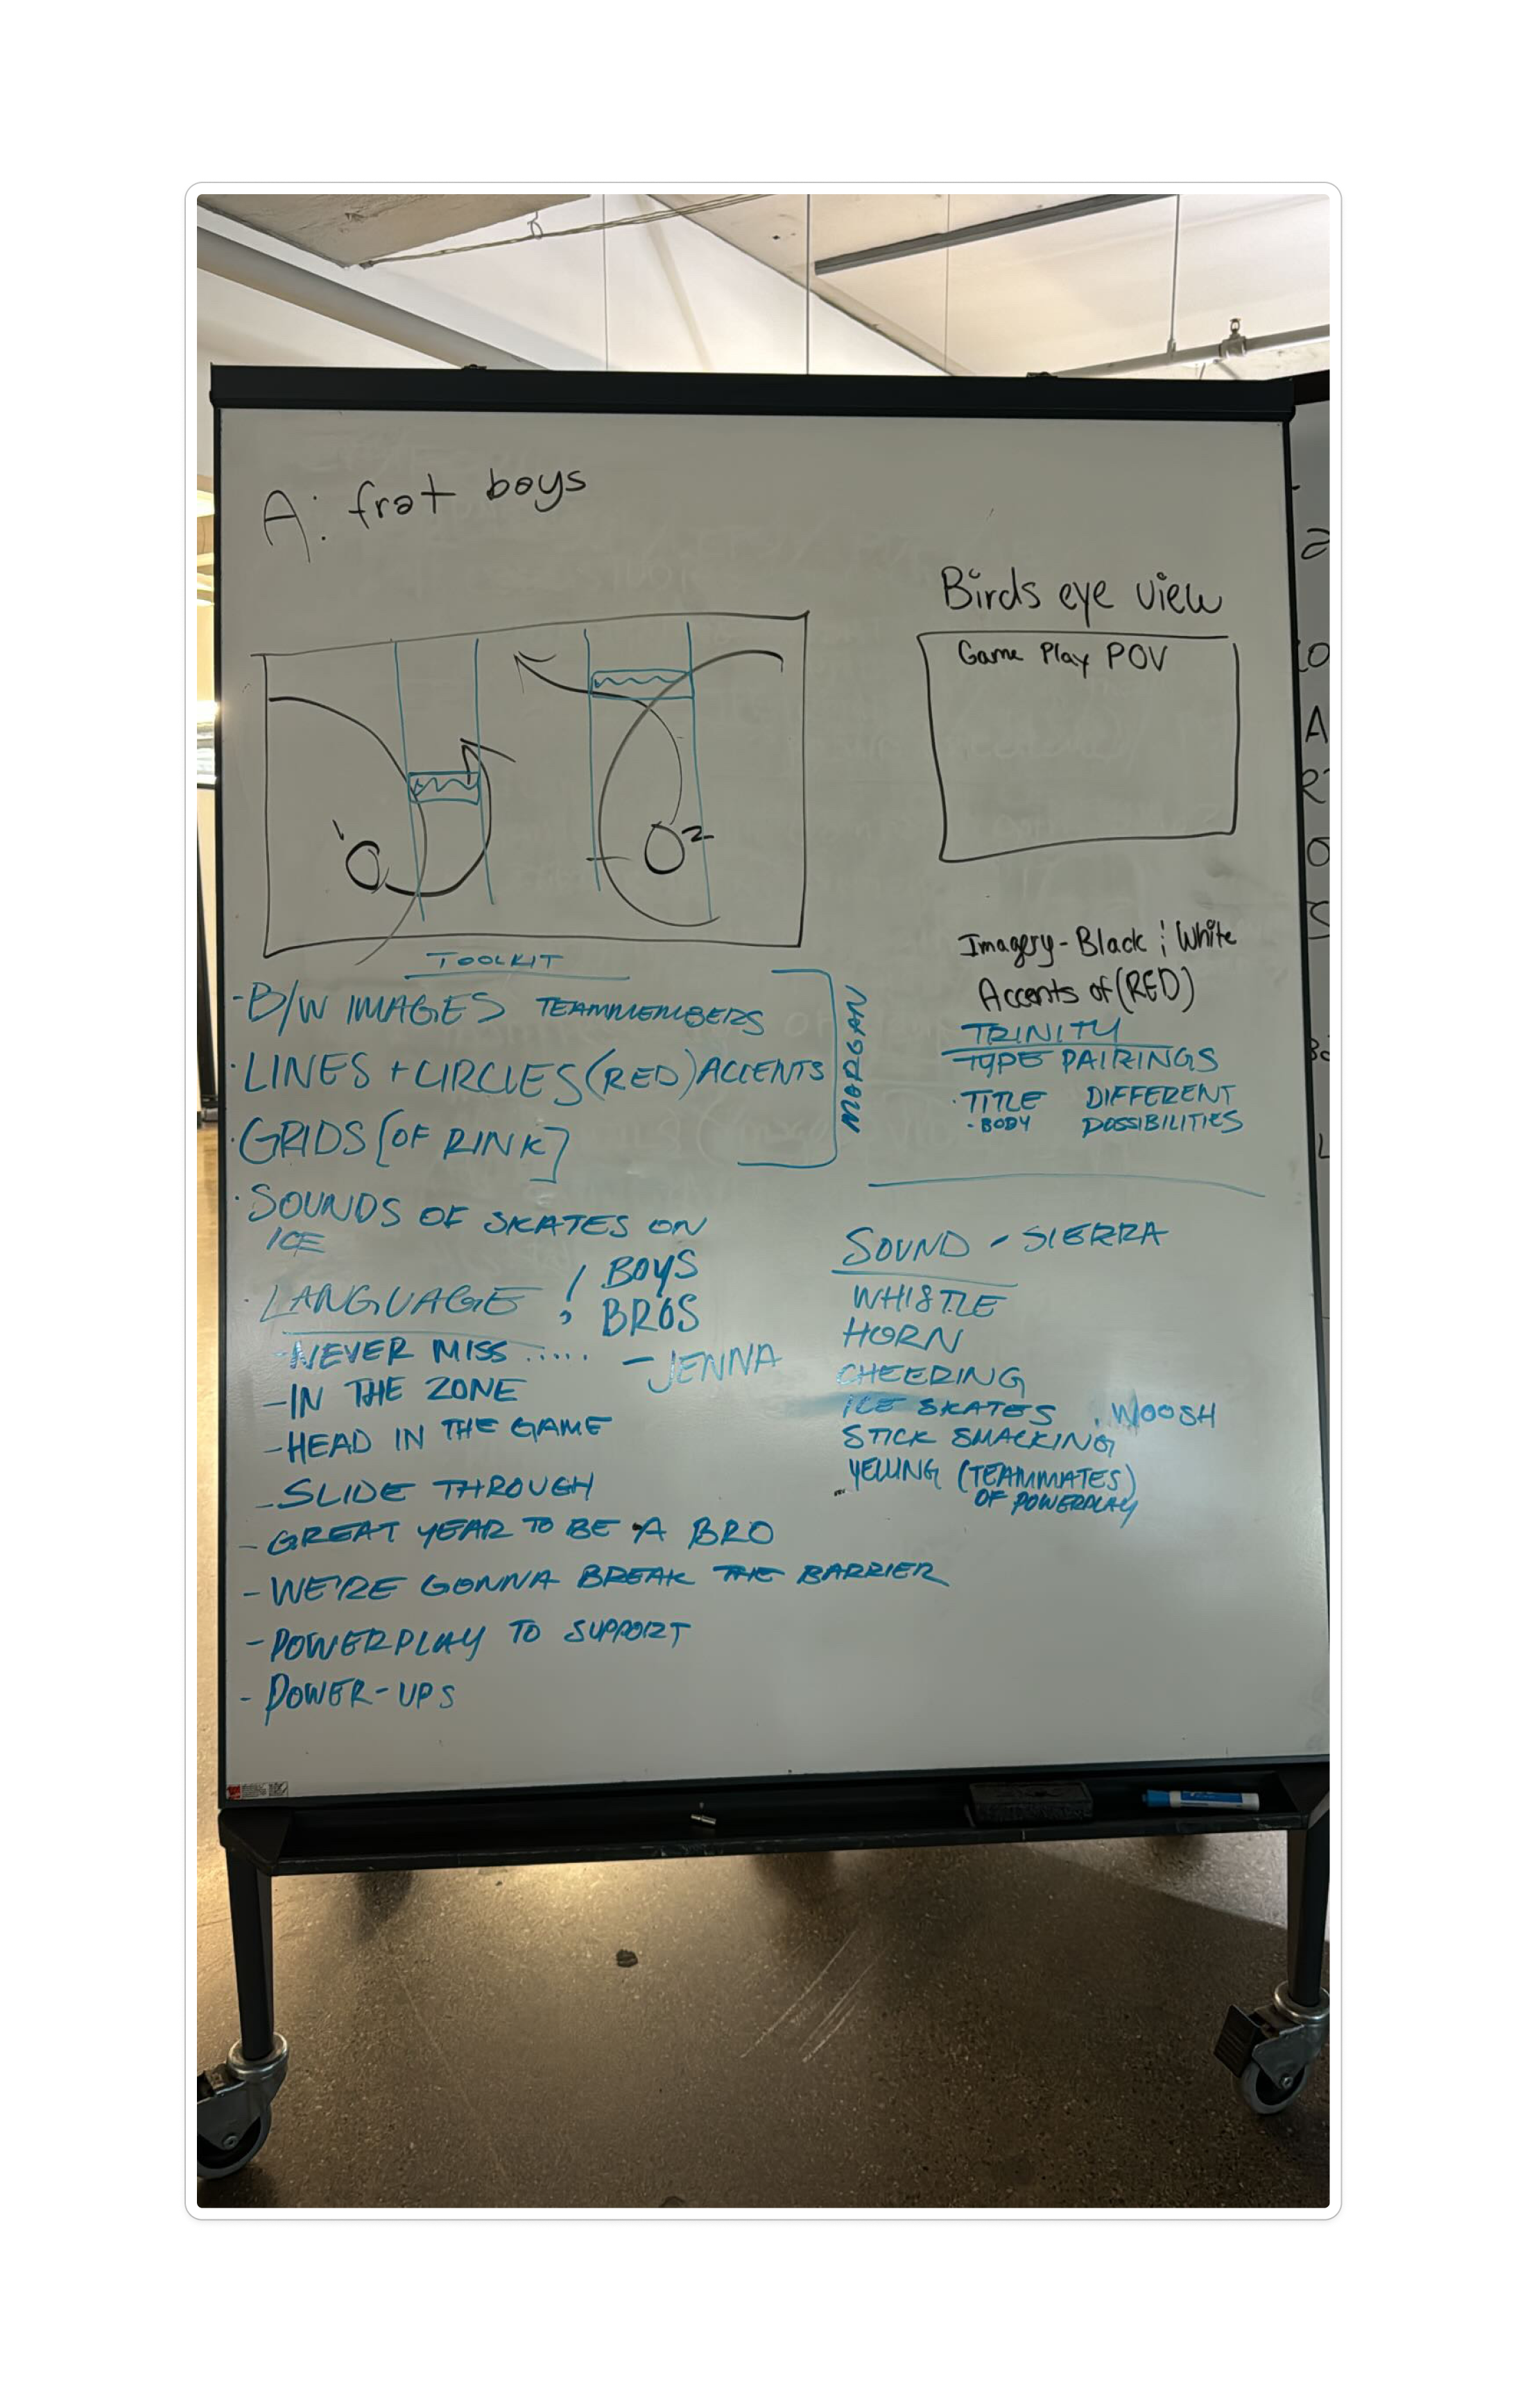 A: frat boys
Birds eye view
Game Play POV
1
2
TOOLKIT
-B/W IMAGES TEAMMEMBERS
·LINES + CIRCLES (RED) ACCENTS
·GRIDS [OF RINK]
MORGAN
·SOUNDS OF SKATES ON
ICE
·LANGUAGE ; / BOYS
BROS
-NEVER MISS ..... -JENNA
-IN THE ZONE
-HEAD IN THE GAME
-SLIDE THROUGH
-GREAT YEAR TO BE A BRO
-WE'RE GONNA BREAK THE BARRIER
-POWERPLAY TO SUPPORT
-POWER-UPS
Imagery-Black & White
Accents of (RED)
TRINITY
TYPE PAIRINGS
·TITLE DIFFERENT
-BODY POSSIBILITIES
SOUND - SIERRA
WHISTLE
HORN
CHEERING
ICE SKATES . WOOSH
STICK SMACKING
YELLING (TEAMMATES)
OF POWERPLAY